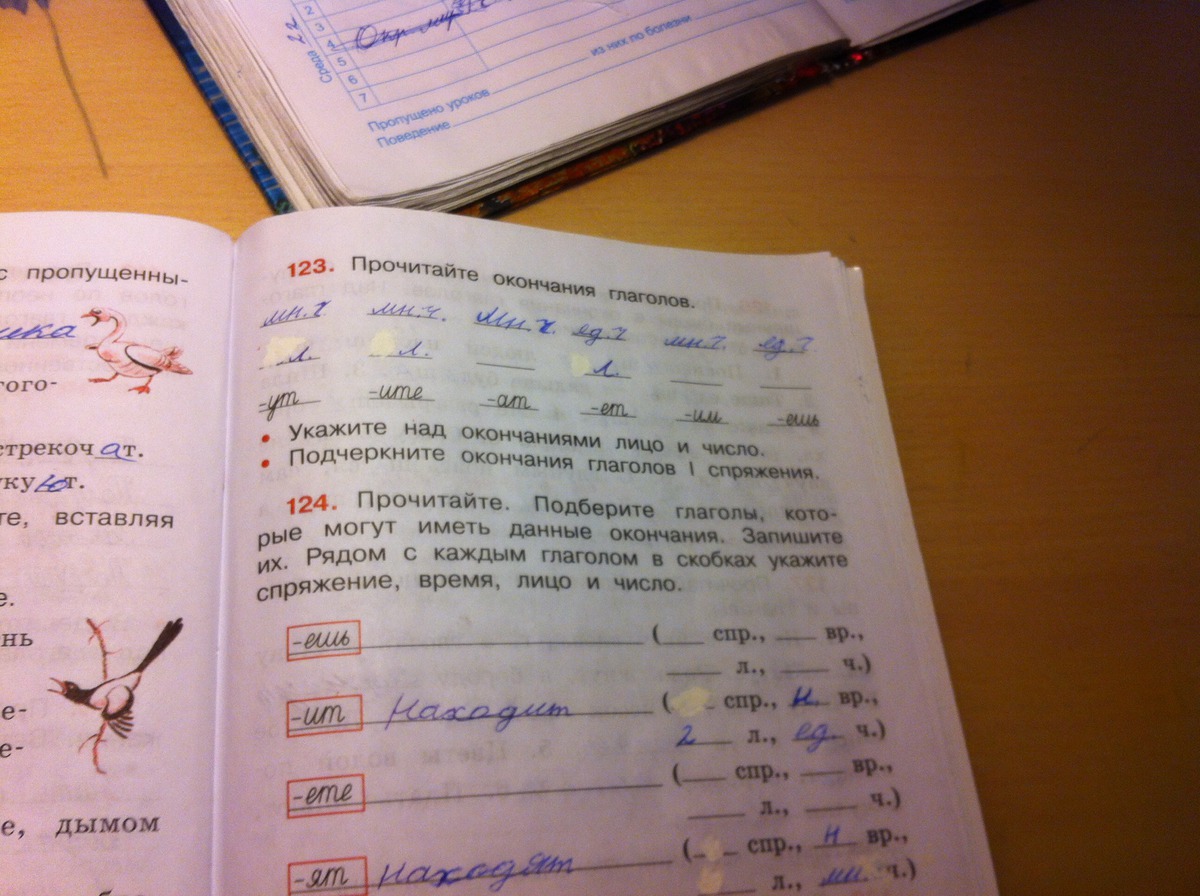 2
3
4
5
6
7
Среда 22
Окр мир
Пропущено уроков из них по болезни
Поведение
с пропущенны-
ого-
стрекочат.
куют.
те, вставляя
е.
нь
е-
е-
е, дымом
123. Прочитайте окончания глаголов.
мн.ч мн.ч. мн.ч. ед.ч мн.ч. ед.ч
л. л. л.
-ут -ите -ат -ет -им -ешь
• Укажите над окончаниями лицо и число.
• Подчеркните окончания глаголов I спряжения.
124. Прочитайте. Подберите глаголы, кото-
рые могут иметь данные окончания. Запишите
их. Рядом с каждым глаголом в скобках укажите
спряжение, время, лицо и число.
-ешь ( спр., вр.,
л., ч.)
-ит Находит ( спр., н. вр.,
2 л., ед. ч.)
-ете ( спр., вр.,
л., ч.)
-ят Находят ( спр., н вр.,
л., мн. ч.)